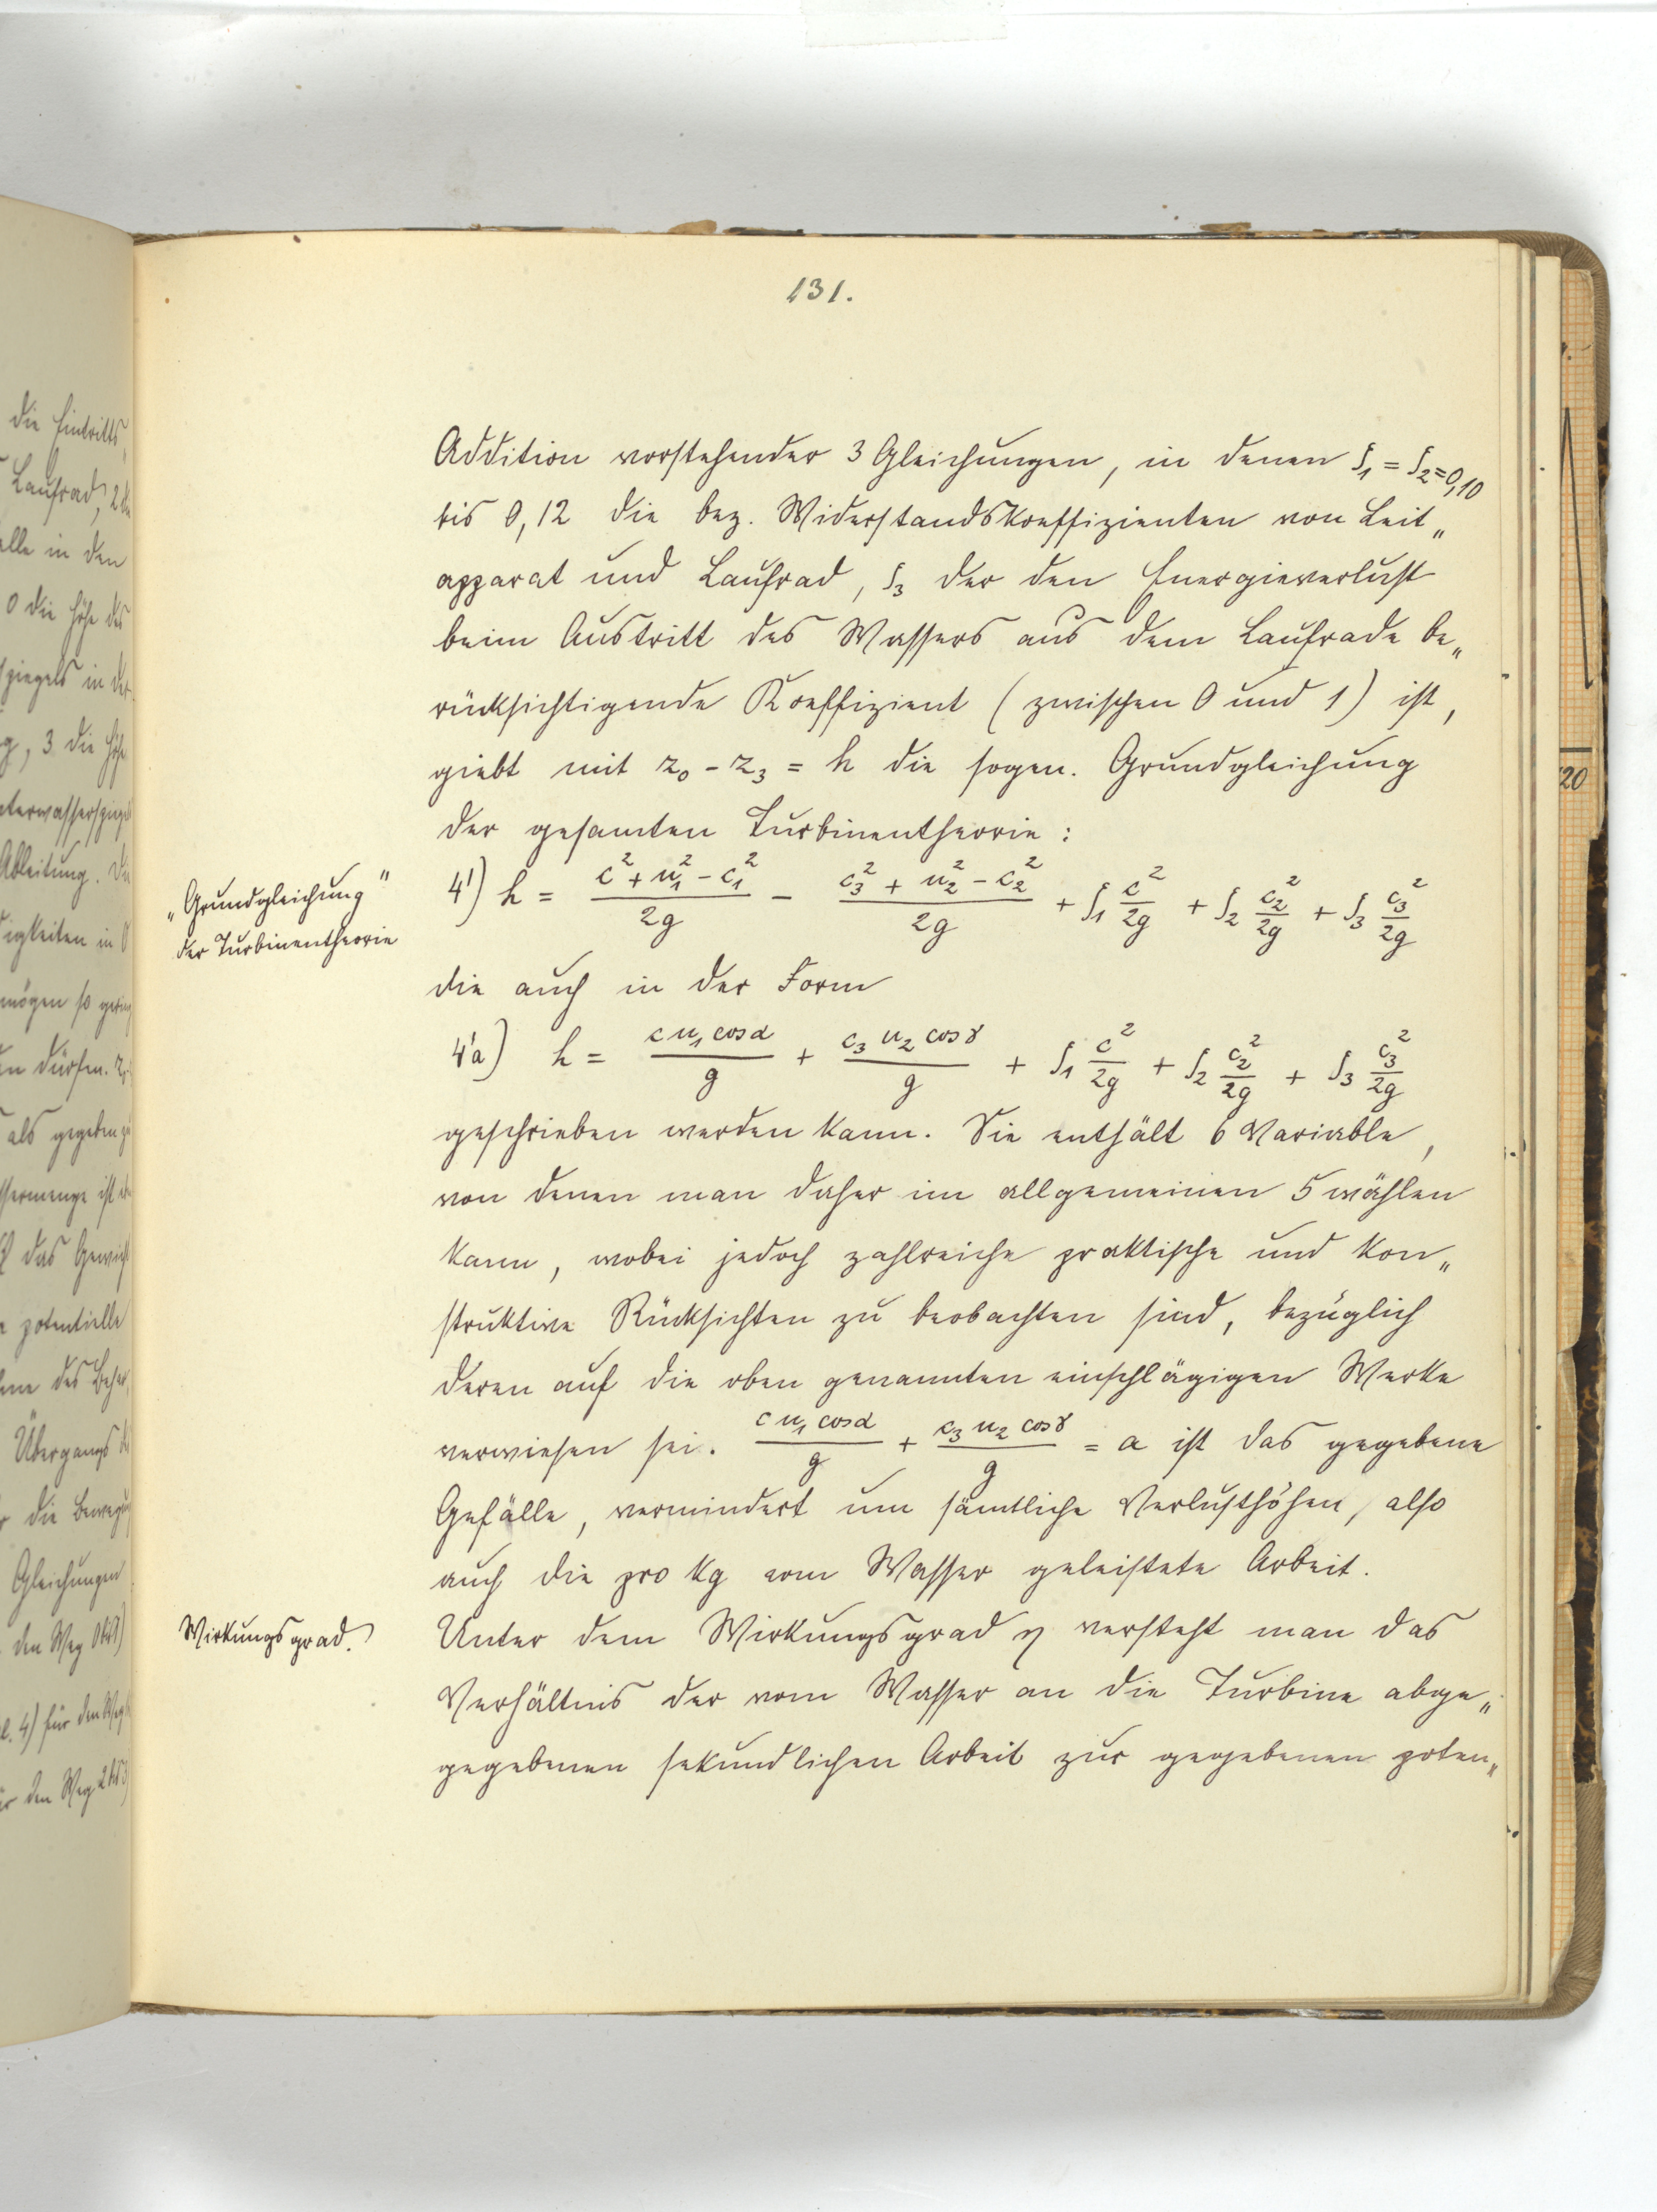 131.
Addition vorstehender 3 Gleichungen, in denen ζ₁ = ζ₂ = 0,10
bis 0,12 die bez. Widerstandskoeffizienten von Leit„
apparat und Laufrad, ζ₃ der den Energieverlust
beim Austritt des Wassers aus dem Laufrade be„
rücksichtigende Koeffizient (zwischen 0 und 1) ist,
giebt mit z₀ - z₃ = h die sogen. Grundgleichung
der gesamten Turbinentheorie:
„Grundgleichung"
der Turbinentheorie
4') h = (c² + u₁² - c₁²)/2g - (c₃² + u₂² - c₂²)/2g + ζ₁ c²/2g + ζ₂ c₂²/2g + ζ₃ c₃²/2g
die auch in der Form
4'a) h = c u₁ cos α/g + c₃ u₂ cos γ/g + ζ₁ c²/2g + ζ₂ c₂²/2g + ζ₃ c₃²/2g
geschrieben werden kann. Sie enthält 6 Variable,
von denen man daher im allgemeinen 5 wählen
kann, wobei jedoch zahlreiche praktische und kon„
struktive Rücksichten zu beobachten sind, bezüglich
deren auf die oben genannten einschlägigen Werke
verwiesen sei. c u₁ cos α/g + c₃ u₂ cos γ/g = a ist das gegebene
Gefälle, vermindert um sämtliche Verlusthöhen, also
auch die pro kg vom Wasser geleistete Arbeit.
Wirkungsgrad.
Unter dem Wirkungsgrad η versteht man das
Verhältnis der vom Wasser an die Turbine abge„
gegebenen sekundlichen Arbeit zur gegebenen poten„
die Eintritts
Laufrad, 2
in den
0 die Höhe des
spiegels in der
, 3 die Höhe
Ableitung. Die
in 0
mögen so gering
dürfen.
als gegeben
ist
das Gewicht
potentielle
des
Übergangs
die
Gleichungen
den Weg
4) für den Weg
den Weg
20